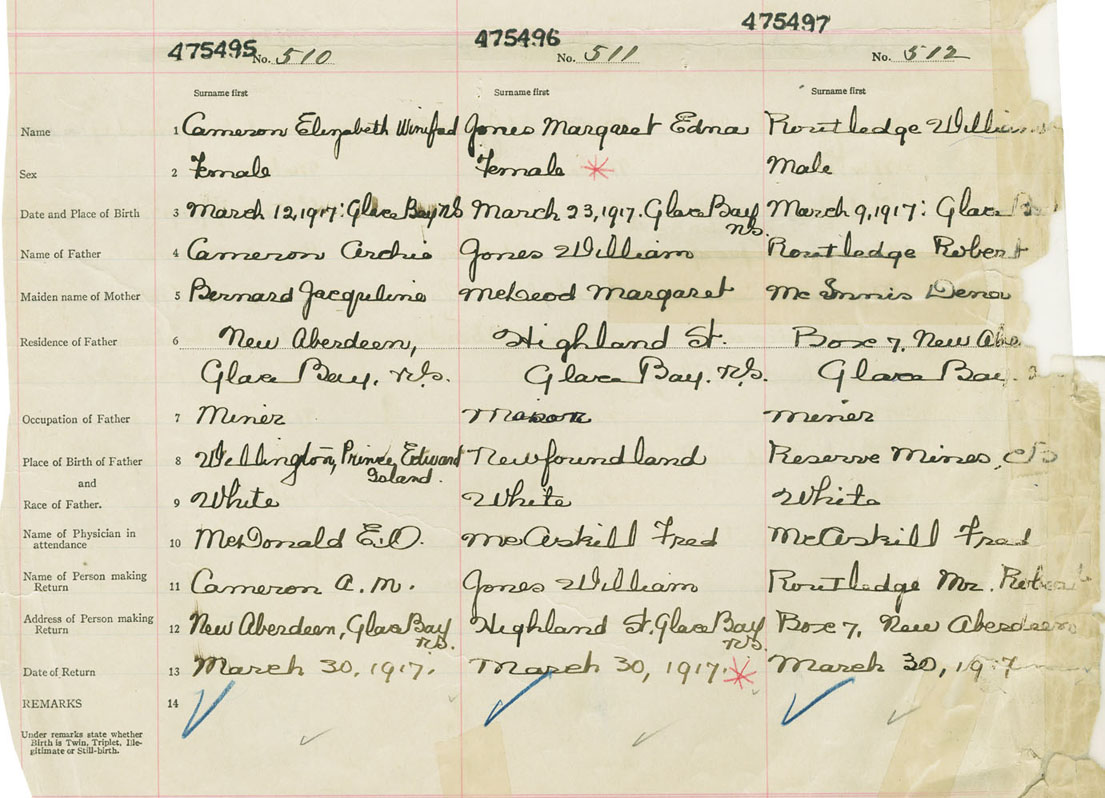 475495 475496 475497
No. 510 No. 511 No. 512
Surname first Surname first Surname first
Name 1 Cameron Elizabeth Winifred Jones Margaret Edna Routledge William
Sex 2 Female Female Male
Date and Place of Birth 3 March 12, 1917: Glace Bay NS March 23, 1917. Glace Bay NS. March 9, 1917: Glace
Name of Father 4 Cameron Archie Jones William Routledge Robert
Maiden name of Mother 5 Bernard Jacquline McLeod Margaret McInnis Dena
Residence of Father 6 New Aberdeen, Highland St. Box 7, New
Glace Bay, N.S. Glace Bay. N.S. Glace Bay.
Occupation of Father 7 Miner Miner
Place of Birth of Father 8 Wellington, Prince Edward Island. Newfoundland Reserve Mines, CB
and
Race of Father. 9 White White White
Name of Physician in
attendance 10 McDonald E.O. McAskill Fred McAskill Fred
Name of Person making
Return 11 Cameron A. M. Jones William Routledge Mr.
Address of Person making
Return 12 New Aberdeen, Glace Bay N.S. Highland St. Glace Bay N.S. Box 7, New Aberdeen
Date of Return 13 March 30, 1917. March 30, 1917. March 30, 1917
REMARKS 14
Under remarks state whether
Birth is Twin, Triplet, Ille-
gitimate or Still-birth.